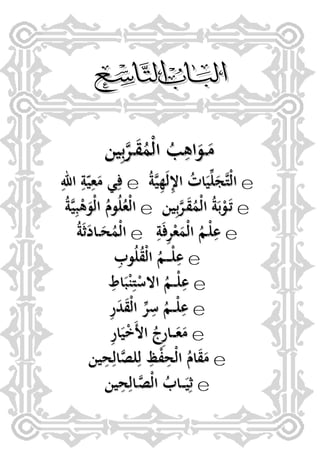 الباب التاسع
مَوَاهِبُ الْمُقَرَّبِين
التَّجَلِّيَاتُ الإِلَهِيَّةُ ℮ فِي مَعِيَّةِ اللهِ ℮
تَوْبَةُ الْمُقَرَّبِين ℮ الْعُلُومُ الْوَهْبِيَّةُ ℮
عِلْمُ الْمَعْرِفَةِ ℮ الْمُحَـادَثَةُ ℮
عِلْـمُ الْقُلُوبِ ℮
عِلْـمُ الاسْتِنْبَاطِ ℮
عِلْـمُ سِرِّ الْقَدَرِ ℮
مَعَـارِجُ الأَخْيَارِ ℮
مَقَامُ الْحِفْظِ لِلصَّالِحِين ℮
ثِيَـابُ الْصَّالِحِين ℮